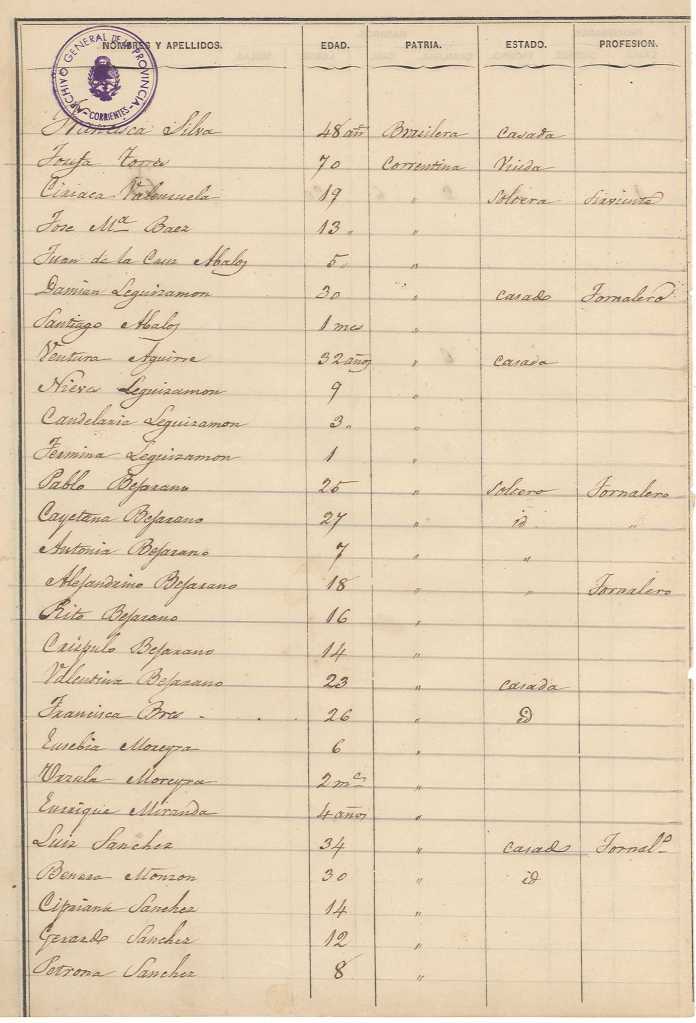 ARCHIVO GENERAL DE LA PROVINCIA
-CORRIENTES-
NOMBRES Y APELLIDOS. EDAD. PATRIA. ESTADO. PROFESION.
Francisca Silva 48 añ Brasilera casada
Josefa Torres 70 Correntina Viuda
Ciriaca Valenzuela 19 " soltera Sirviente
Jose Mª Baez 13 " "
Juan de la Cruz Abalos 5 " "
Damian Leguizamon 30 " casado Jornalero
Santiago Abalos 1 mes "
Ventura Aguirre 32 años " casada
Nieves Leguizamon 9 "
Candelaria Leguizamon 3 " "
Fermina Leguizamon 1 "
Pablo Bejarano 25 " soltero Jornalero
Cayetana Bejarano 27 " id "
Antonia Bejarano 7 " "
Alejandrino Bejarano 18 " " Jornalero
Rito Bejarano 16 "
Crispulo Bejarano 14 "
Valentina Bejarano 23 " casada
Francisca 26 " id
Eusebia Moreyra 6 "
Ursula Moreyra 2 mˢ "
Enrrique Miranda 4 años "
Luis Sanchez 34 " casado Jornalº
Monzon 30 " id
Cipriana Sanchez 14 "
Gerardo Sanchez 12 "
Petrona Sanchez 8 "